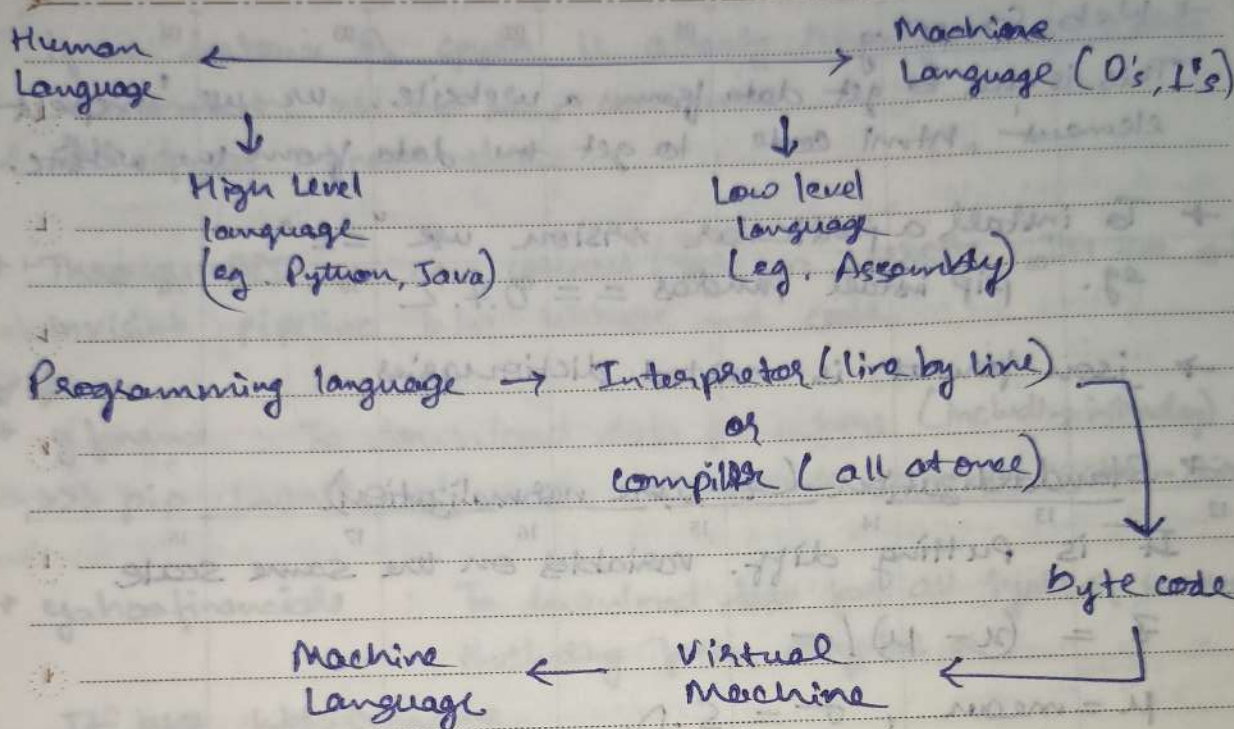 Human Language ⟷ Machine Language (0's, 1's)
↓ ↓
High Level language (eg. Python, Java)
Low level language (eg. Assembly)
Programming language → Interpretor (line by line)
or
compiler (all at once)
byte code
Machine Language ← Virtual Machine ←